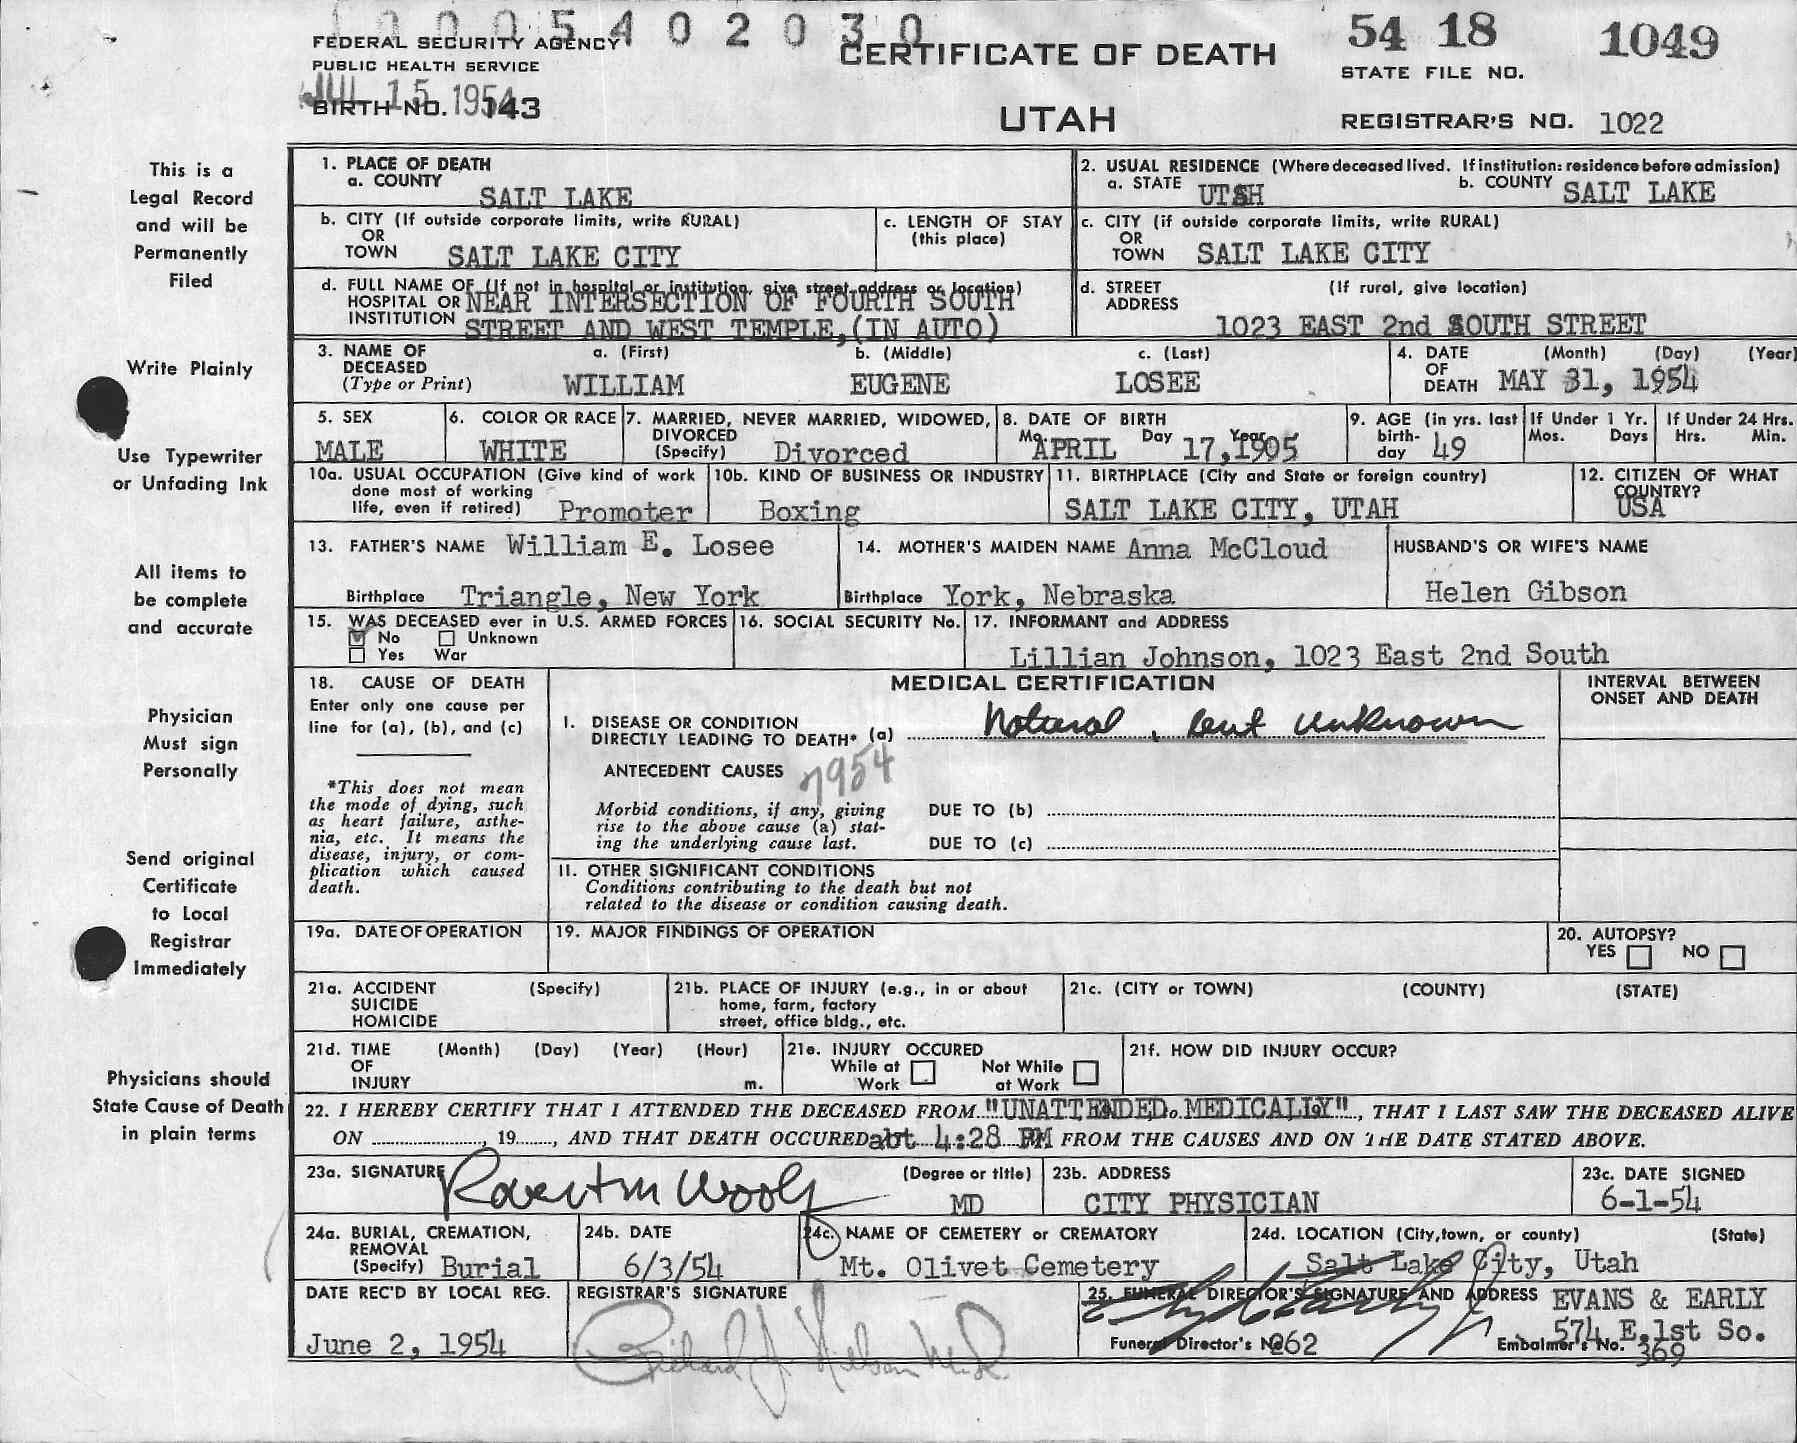 1 0 0 0 5 4 0 2 0 3 0
54 18 1049
FEDERAL SECURITY AGENCY
PUBLIC HEALTH SERVICE
CERTIFICATE OF DEATH
STATE FILE NO.
JUL 15 1954
BIRTH NO. 143
UTAH
REGISTRAR'S NO. 1022
This is a
Legal Record
and will be
Permanently
Filed
Write Plainly
Use Typewriter
or Unfading Ink
All items to
be complete
and accurate
Physician
Must sign
Personally
Send original
Certificate
to Local
Registrar
Immediately
Physicians should
State Cause of Death
in plain terms
1. PLACE OF DEATH
a. COUNTY SALT LAKE
2. USUAL RESIDENCE (Where deceased lived. If institution: residence before admission)
a. STATE UTSH b. COUNTY SALT LAKE
b. CITY (If outside corporate limits, write RURAL)
OR
TOWN SALT LAKE CITY
c. LENGTH OF STAY
(this place)
c. CITY (if outside corporate limits, write RURAL)
OR
TOWN SALT LAKE CITY
d. FULL NAME OF (If not in hospital or institution, give street address or location)
HOSPITAL OR NEAR INTERSECTION OF FOURTH SOUTH
INSTITUTION STREET AND WEST TEMPLE, (IN AUTO)
d. STREET (If rural, give location)
ADDRESS
1023 EAST 2nd SOUTH STREET
3. NAME OF a. (First) b. (Middle) c. (Last)
DECEASED
(Type or Print) WILLIAM EUGENE LOSEE
4. DATE (Month) (Day) (Year)
OF
DEATH MAY 31, 1954
5. SEX
MALE
6. COLOR OR RACE
WHITE
7. MARRIED, NEVER MARRIED, WIDOWED,
DIVORCED
(Specify) Divorced
8. DATE OF BIRTH
Mo. Day Year
APRIL 17, 1905
9. AGE (in yrs. last
birth-
day 49
If Under 1 Yr.
Mos. Days
If Under 24 Hrs.
Hrs. Min.
10a. USUAL OCCUPATION (Give kind of work
done most of working
life, even if retired) Promoter
10b. KIND OF BUSINESS OR INDUSTRY
Boxing
11. BIRTHPLACE (City and State or foreign country)
SALT LAKE CITY, UTAH
12. CITIZEN OF WHAT
COUNTRY?
USA
13. FATHER'S NAME William E. Losee
Birthplace Triangle, New York
14. MOTHER'S MAIDEN NAME Anna McCloud
Birthplace York, Nebraska
HUSBAND'S OR WIFE'S NAME
Helen Gibson
15. WAS DECEASED ever in U.S. ARMED FORCES
No Unknown
Yes War
16. SOCIAL SECURITY No.
17. INFORMANT and ADDRESS
Lillian Johnson, 1023 East 2nd South
18. CAUSE OF DEATH
Enter only one cause per
line for (a), (b), and (c)
*This does not mean
the mode of dying, such
as heart failure, asthe-
nia, etc. It means the
disease, injury, or com-
plication which caused
death.
MEDICAL CERTIFICATION
INTERVAL BETWEEN
ONSET AND DEATH
I. DISEASE OR CONDITION
DIRECTLY LEADING TO DEATH* (a) Natural, but unknown
ANTECEDENT CAUSES
7954
Morbid conditions, if any, giving
rise to the above cause (a) stat-
ing the underlying cause last.
DUE TO (b)
DUE TO (c)
II. OTHER SIGNIFICANT CONDITIONS
Conditions contributing to the death but not
related to the disease or condition causing death.
19a. DATE OF OPERATION
19. MAJOR FINDINGS OF OPERATION
20. AUTOPSY?
YES NO
21a. ACCIDENT (Specify)
SUICIDE
HOMICIDE
21b. PLACE OF INJURY (e.g., in or about
home, farm, factory
street, office bldg., etc.
21c. (CITY or TOWN) (COUNTY) (STATE)
21d. TIME (Month) (Day) (Year) (Hour)
OF
INJURY m.
21e. INJURY OCCURED
While at Not While
Work at Work
21f. HOW DID INJURY OCCUR?
22. I HEREBY CERTIFY THAT I ATTENDED THE DECEASED FROM "UNATTENDED MEDICALLY", THAT I LAST SAW THE DECEASED ALIVE
ON , 19 , AND THAT DEATH OCCURED abt 4:28 PM FROM THE CAUSES AND ON THE DATE STATED ABOVE.
23a. SIGNATURE (Degree or title)
MD
23b. ADDRESS
CITY PHYSICIAN
23c. DATE SIGNED
6-1-54
24a. BURIAL, CREMATION,
REMOVAL
(Specify) Burial
24b. DATE
6/3/54
24c. NAME OF CEMETERY or CREMATORY
Mt. Olivet Cemetery
24d. LOCATION (City, town, or county) (State)
Salt Lake City, Utah
DATE REC'D BY LOCAL REG.
June 2, 1954
REGISTRAR'S SIGNATURE
25. FUNERAL DIRECTOR'S SIGNATURE AND ADDRESS EVANS & EARLY
574 E. 1st So.
Funeral Director's No 262 Embalmer's No. 369